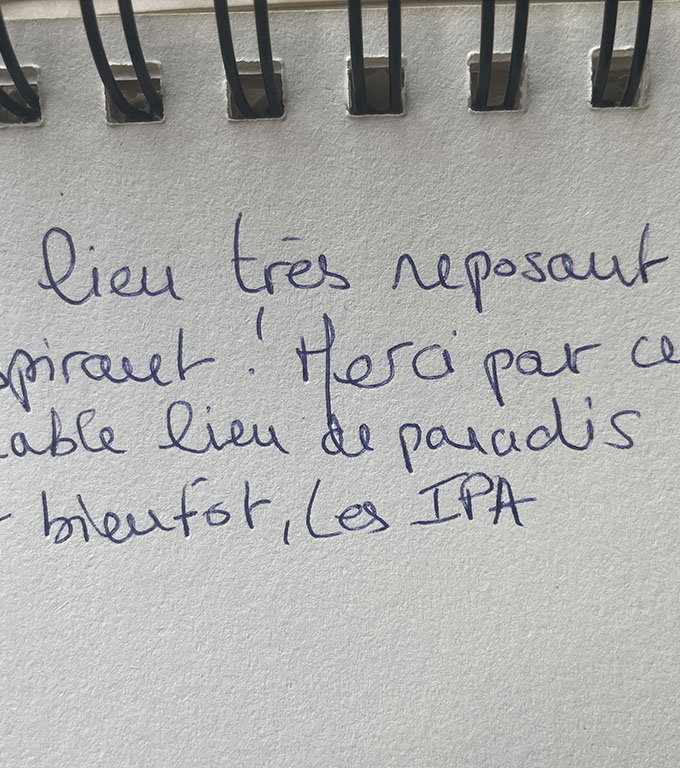 lieu très reposant
spirant ! Merci par ce
able lieu de paradis
bientot, Les IPA